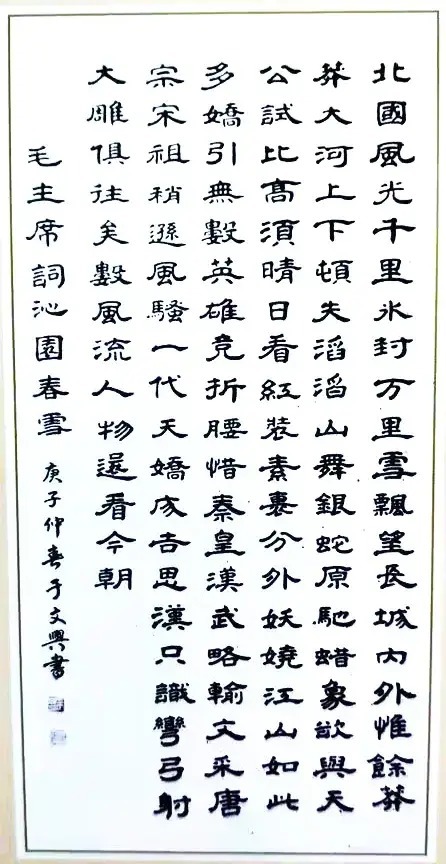 北國風光千里氷封万里雪飄望長城内外惟餘莽
莽大河上下頓失滔滔山舞銀蛇原馳蜡象欲與天
公試比髙須晴日看紅装素裹分外妖嬈江山如此
多嬌引無數英雄竞折腰惜秦皇漢武略輸文采唐
宗宋祖稍遜風騷一代天嬌成吉思漢只識彎弓射
大雕俱往矣數風流人物還看今朝
毛主席詞沁園春雪 庚子仲春于文興書